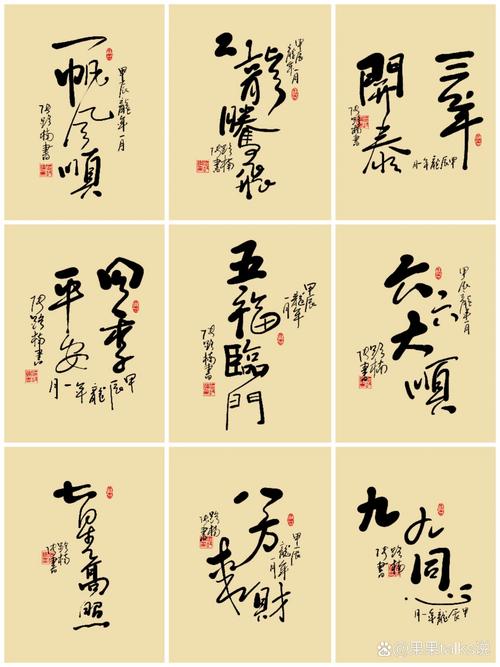 一帆风順
甲辰龍年一月
路楠書
二龍騰飛
甲辰龍年一月
路楠書
三羊
開泰
甲辰龍年一月
路楠書
四季
平安
甲辰龍年一月
路楠書
五福臨門
甲辰龍年一月
路楠書
六六大順
甲辰龍年一月
路楠書
七星高照
路楠書
八方
来財
甲辰龍年一月
路楠書
九
九同心
甲辰龍年一月
路楠書
@果果talks说